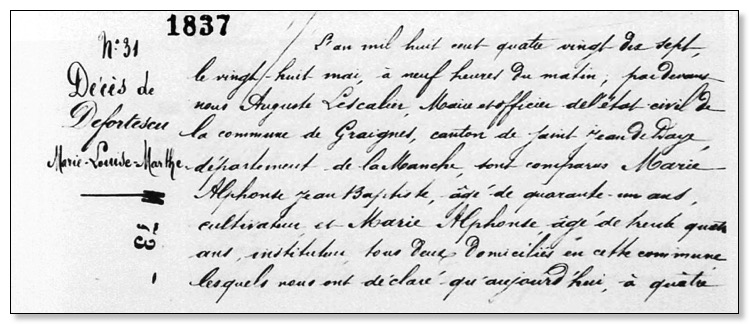 1837
N° 31
Décès de
Defortescu
Marie-Louise-Marthe
L'an mil huit cent quatre vingt dix sept,
le vingt-huit mai, à neuf heures du matin, par devant
nous Auguste Lescalier, Maire et officier de l'état civil de
la commune de Graignes, canton de Saint Jean de Daye,
département de la Manche, sont comparus Marie
Alphonse Jean Baptiste, âgé de quarante-un ans,
cultivateur, et Marie Alphonse, âgé de trente quatre
ans, instituteur, tous deux domiciliés en cette commune
lesquels nous ont déclaré qu'aujourd'hui, à quatre